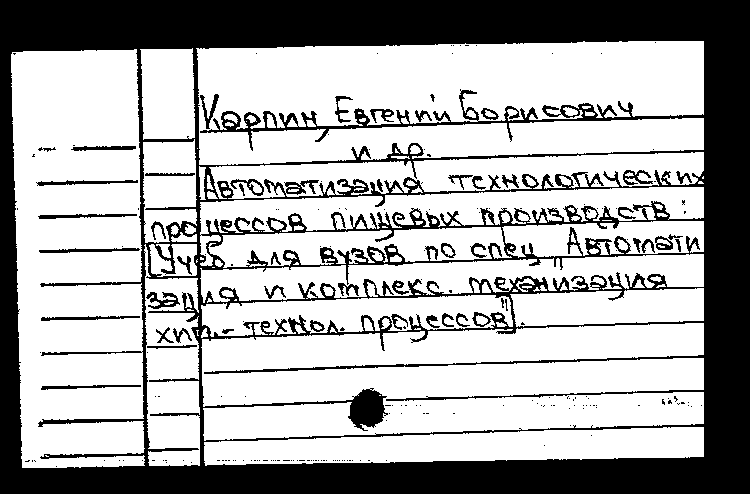 Карпин, Евгений Борисович
и др.
Автоматизация технологических
процессов пищевых производств :
[Учеб. для вузов по спец „Автомати
зация и комплекс. механизация
хим.- технол. процессов"].